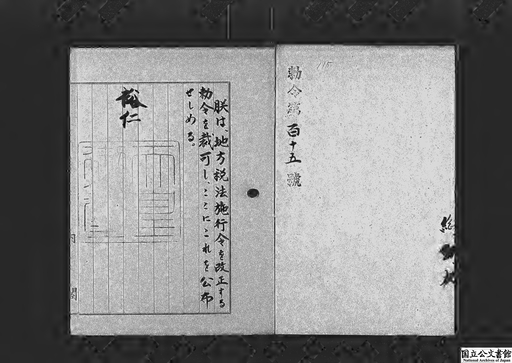 勅令第百十五號
朕は、地方税法施行令を改正する
勅令を裁可し、ここにこれを公布
せしめる。
裕仁
内閣
国立公文書館
National Archives of Japan